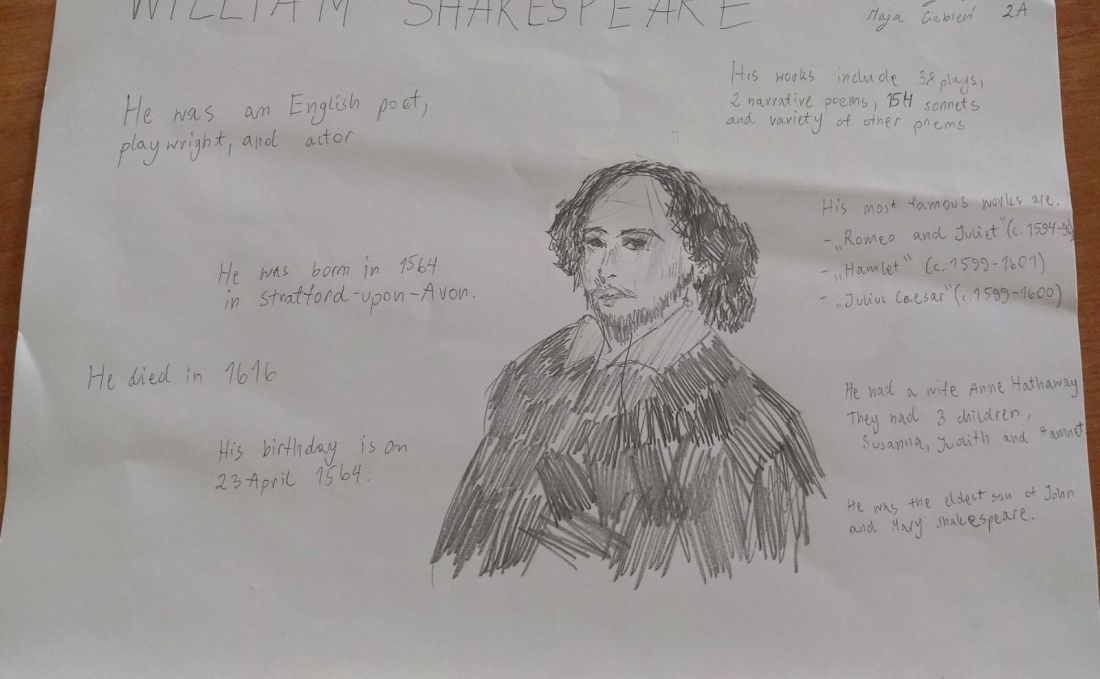 WILLIAM SHAKESPEARE
Maja 2A
He was an English poet,
playwright, and actor
His works include 38 plays,
2 narrative poems, 154 sonnets
and variety of other poems
His most famous works are.
- „Romeo and Juliet" (c. 1594-96)
- „Hamlet" (c. 1599-1601)
- „Julius Caesar" (c. 1599-1600)
He was born in 1564
in Stratford-upon-Avon.
He died in 1616
He had a wife Anne Hathaway
They had 3 children,
Susanna, Judith and Hamnet
His birthday is on
23 April 1564.
He was the eldest son of John
and Mary Shakespeare.